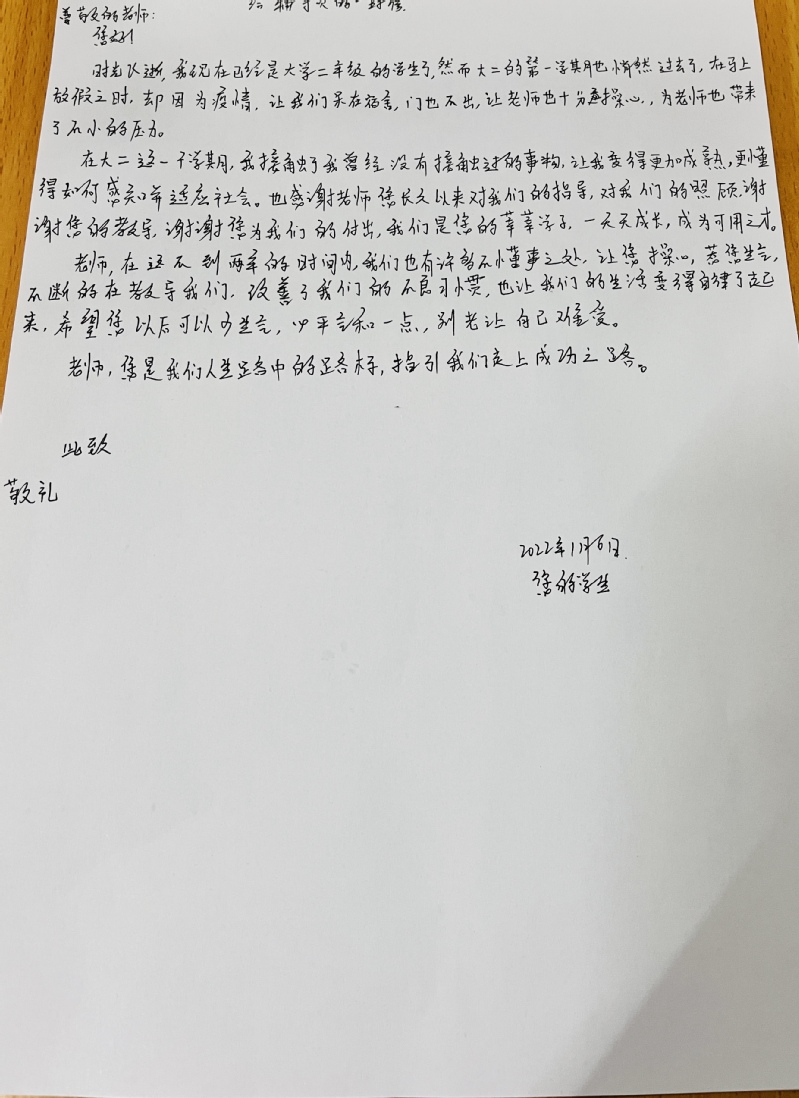 给辅导员的一封信
尊敬的老师:
您好!
时光飞逝,我现在已经是大学二年级的学生了,然而大二的第一学期也悄然过去了,在马上
放假之时,却因为疫情,让我们呆在宿舍,门也不出,让老师也十分操心,为老师也带来
了不小的压力。
在大二这一个学期,我接触了我曾经没有接触过的事物,让我变得更加成熟,更懂
得如何感知并适应社会。也感谢老师您长久以来对我们的指导,对我们的照顾,谢
谢您的教导,谢谢您为我们的付出,我们是您的莘莘学子,一天天成长,成为可用之才。
老师,在这不到两年的时间内,我们也有许多不懂事之处,让您操心,惹您生气,
不断的在教导我们,改善了我们的不良习惯,也让我们的生活变得自律了起
来,希望您以后可以少生气,心平气和一点,别老让自己难受。
老师,您是我们人生路中的路标,指引我们走上成功之路。
此致
敬礼
2022年1月6日
您的学生